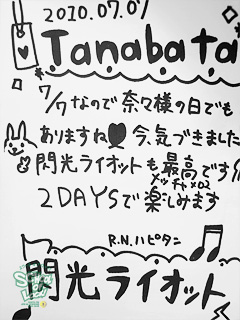 2010.07.07
Tanabata
7/7なので奈々様の日でも
ありますね♥今、気づきました
閃光ライオットも最高です!!
2DAYSで楽しみます
R.N.ハピタン
閃光ライオット